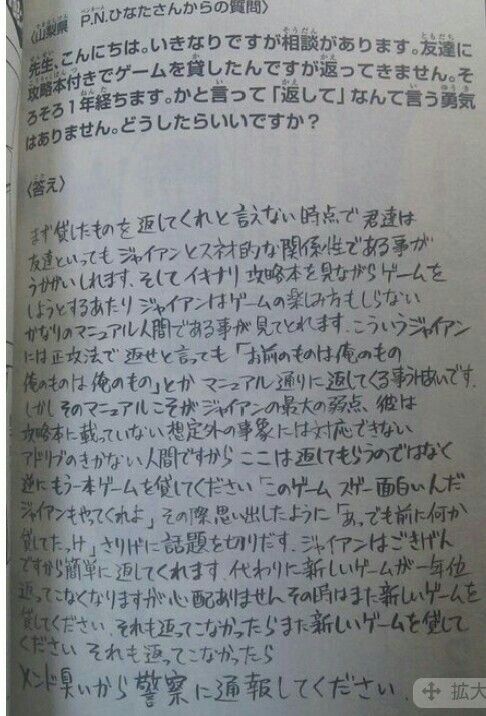 〈山梨県　P.N.ひなたさんからの質問〉
先生、こんにちは。いきなりですが相談があります。友達に
攻略本付きでゲームを貸したんですが返ってきません。そ
ろそろ1年経ちます。かと言って「返して」なんて言う勇気
はありません。どうしたらいいですか？
〈答え〉
まず貸したものを返してくれと言えない時点で君達は
友達といってもジャイアンとスネオ的な関係性である事が
うかがいしれます。そしてイキナリ攻略本を見ながらゲームを
しようとするあたりジャイアンはゲームの楽しみ方もしらない
かなりのマニュアル人間である事が見てとれます。こういうジャイアン
には正攻法で返せと言っても「お前のものは俺のもの
俺のものは俺のもの」とかマニュアル通りに返してくる事うけあいです。
しかしそのマニュアルこそがジャイアンの最大の弱点、彼は
攻略本に載っていない想定外の事象には対応できない
アドリブのきかない人間ですからここは返してもらうのではなく
逆にもう一本ゲームを貸してください「このゲームスゲー面白いんだ
ジャイアンもやってくれよ」その際思い出したように「あっでも前に何か
貸してたっけ」さりげに話題を切りだす。ジャイアンはごきげん
ですから簡単に返してくれます。代わりに新しいゲームが一年位
返ってこなくなりますが心配ありませんその時はまた新しいゲームを
貸してください。それも返ってこなかったらまた新しいゲームを貸して
ください それも返ってこなかったら
メンド臭いから警察に通報してください。
拡大